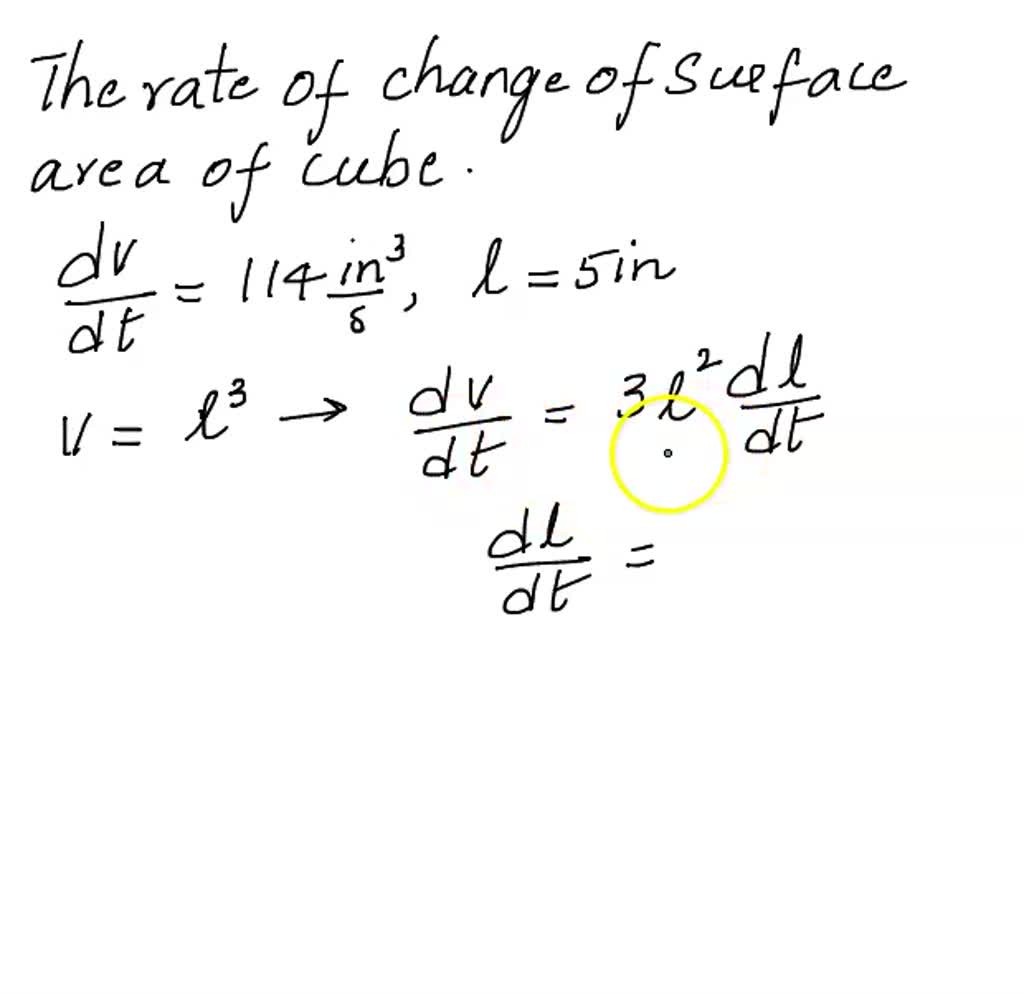 The rate of change of surface
area of cube.
dv/dt = 114 in³/s, l = 5in
V = l³ → dv/dt = 3l² dl/dt
dl/dt =